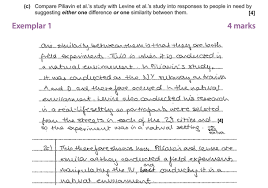 (c) Compare Piliavin et al.'s study with Levine et al.'s study into responses to people in need by
suggesting either one difference or one similarity between them. [4]
Exemplar 1 4 marks
One similarity between them is that they are both
field experiments. This is when it is conducted in
a natural environment. In Piliavin's study
it was conducted as the NY subway as trains
A and D are therefore occured in the natural
environment. Levine also conducted his research
in a real-life setting as participants were selected
from the streets in each of the 23 cities and [4]
so the experiment was in a natural setting.
2c) This therefore shows how Piliavin and Levine are
similar as they conducted a field experiment
manipulating the IV, but conducting it in a
natural environment.